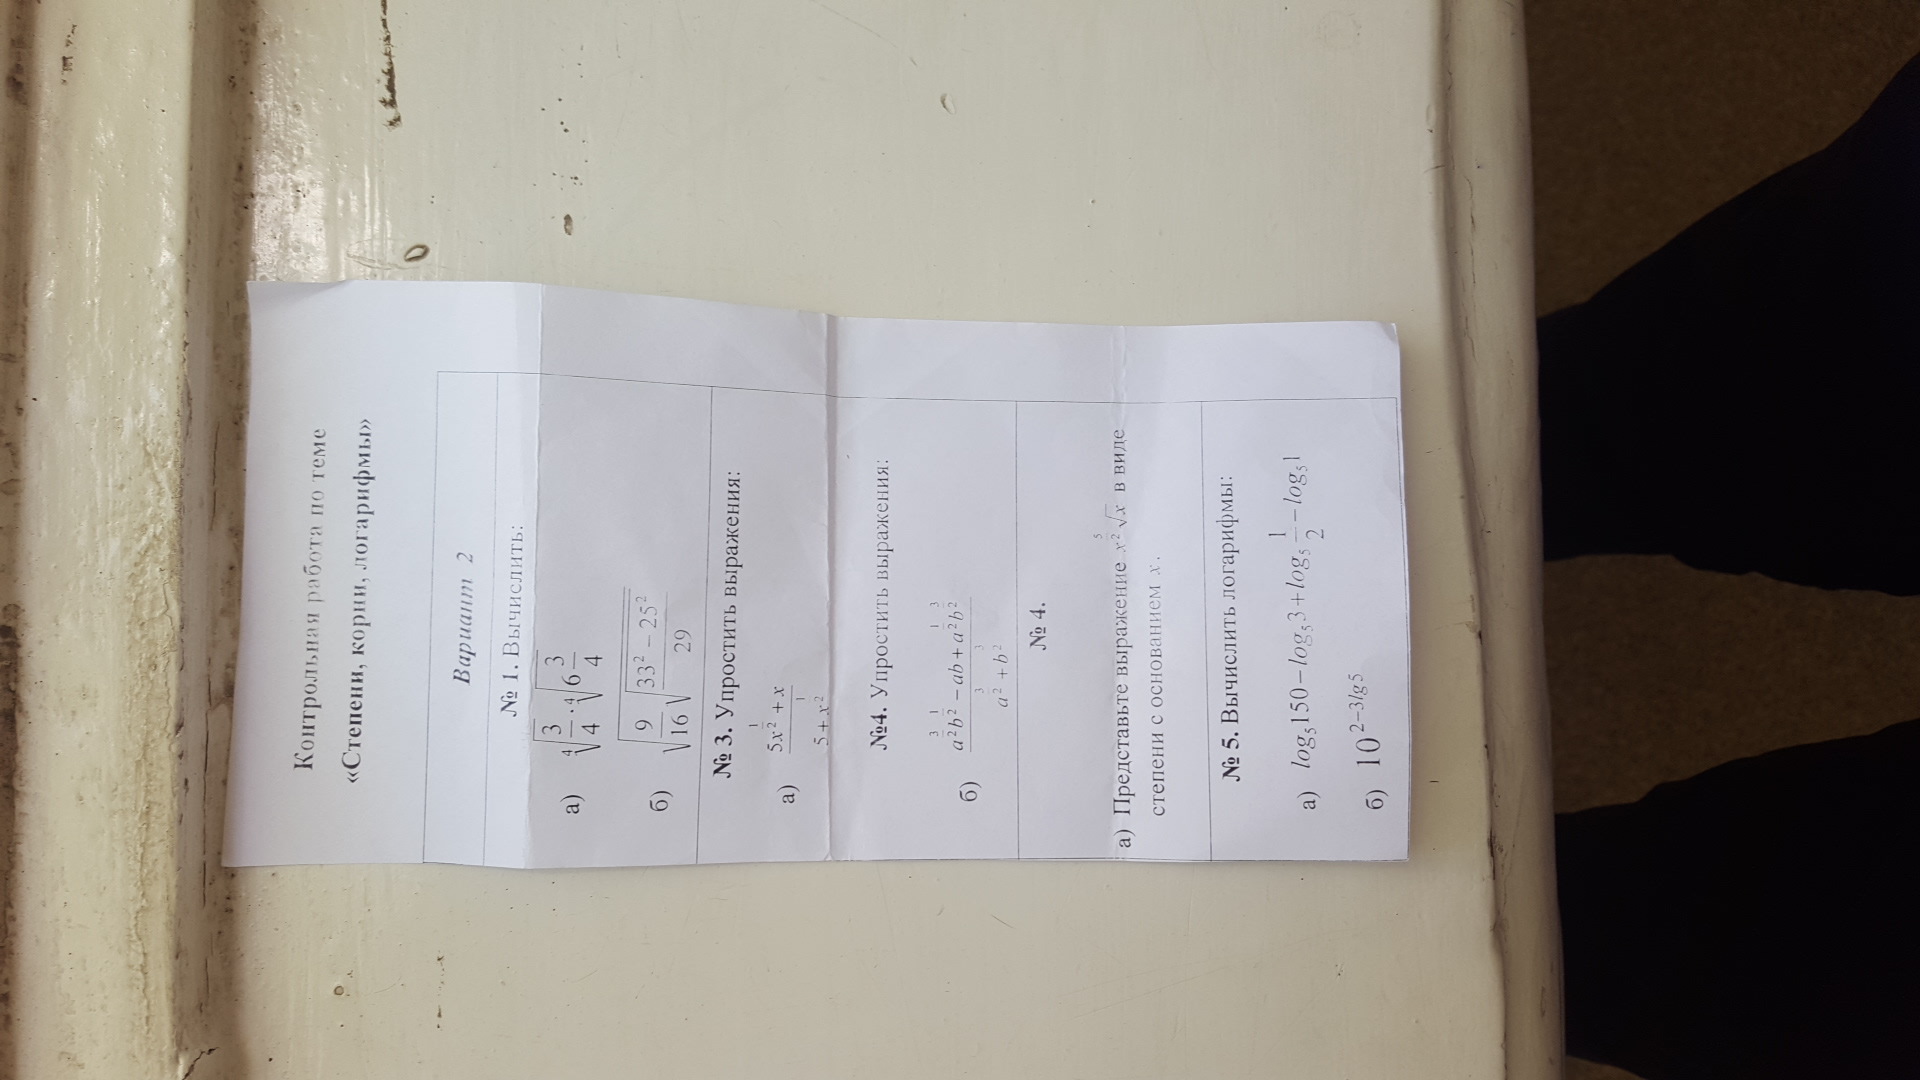 Контрольная работа по теме
«Степени, корни, логарифмы»
Вариант 2
№ 1. Вычислить:
а) ∜(3/4) · ∜(6 3/4)
б) √(9/16 √((33² − 25²)/29))
№ 3. Упростить выражения:
а) (5x^(1/2) + x)/(5 + x^(1/2))
№4. Упростить выражения:
б) (a^(3/2)b^(1/2) − ab + a^(1/2)b^(3/2))/(a^(3/2) + b^(3/2))
№ 4.
а) Представьте выражение x^(5/2)√x в виде
степени с основанием x.
№ 5. Вычислить логарифмы:
а) log₅150 − log₅3 + log₅ 1/2 − log₅1
б) 10^(2−3lg5)